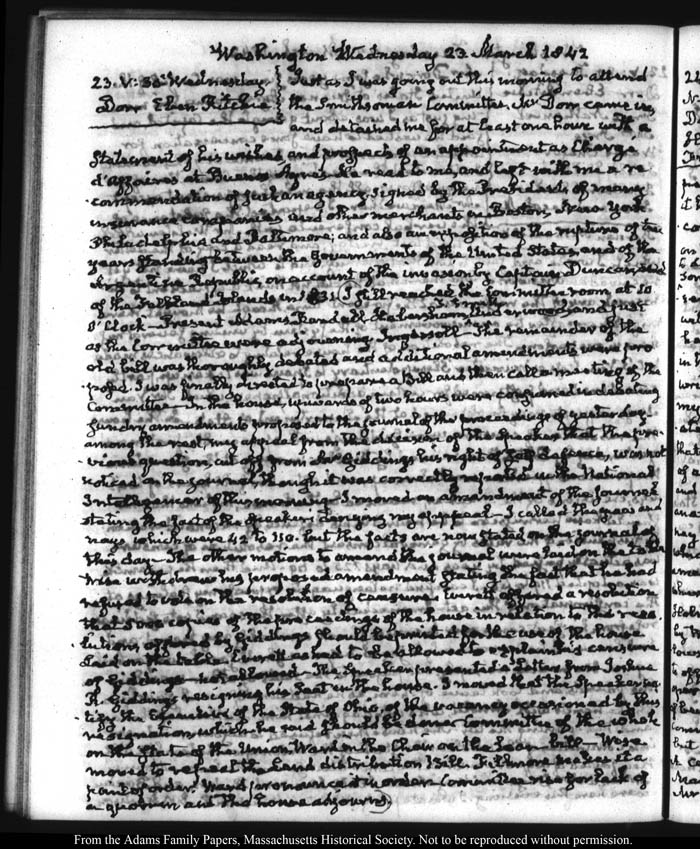 Washington Wednesday 23 March 1842
23. V: 30 Wednesday
Dorr Eben Ritchie
Just as I was going out this morning to attend
the Smithsonian Committee, Mr Dorr came in,
and detained me for at least one hour with a
statement of his wishes and prospects of an appointment as Chargé
d'Affaires at Buenos Ayres. He read to me, and left with me a re
commendation of such an agency, signed by the Presidents of many
insurance companies and other merchants in Boston, New York
Philadelphia and Baltimore; and also an exposition of the rupture of ten
years standing between the Governments of the United States, and of the
Argentine Republic, on account of the invasion by Captain Duncan
of the Falkland Islands in 1831. I still reached the Committee room at 10
O'Clock— Present Adams, Randall, Habersham, Underwood, and just
as the Committee were adjourning Ingersoll— The remainder of the
old bill was thoroughly debated and additional amendments were pro
posed. I was finally directed to prepare a Bill and then call a meeting of the
Committee— In the house, upwards of two hours were consumed in debating
sundry amendments proposed to the journal of the proceedings of yesterday—
among the rest, my appeal from the decision of the Speaker that the pre-
vious question, cut off from Mr Giddings his right of self defence, was not
noticed on the journal, though it was correctly reported in the National
Intelligencer of this morning— I moved an amendment of the journal,
stating the fact of the Speaker's denying my appeal— I called the yeas and
nays which were 42 to 110. but the facts are now stated on the journal of
this day— The other motions to amend the journal were laid on the table
Wise withdrew his proposed amendment stating the fact that he had
refused to vote on the resolution of censure. Everett offered a resolution
that 5000 copies of the proceedings of the house in relation to the reso
lutions offered by Giddings should be printed for the use of the house
Laid on the table. Everett asked to be allowed to explain his censure
of Giddings— not allowed— The Speaker presented a Letter from Joshua
R. Giddings resigning his Seat in the house. I moved that the Speaker no
tify the Executive of the State of Ohio, of the vacancy occasioned by this
resignation, which he said should be done. Committee of the whole
on the State of the Union. Ward in the Chair on the Loan bill— Wise
moved to repeal the Land distribution Bill. Fillmore makes it a
point of order. Ward pronounced it in order. Committee rise for lack of
a quorum and the house adjourned.
From the Adams Family Papers, Massachusetts Historical Society. Not to be reproduced without permission.